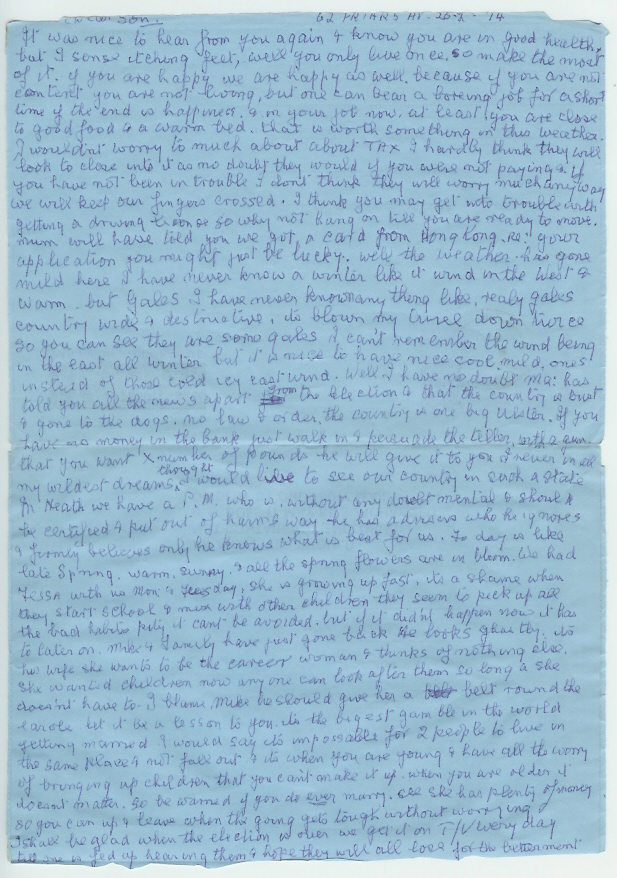 Dear Son. 62 FRIARS AV. 26-2-74
It was nice to hear from you again & know you are in good health,
but I sense itching feet, well you only live once, so make the most
of it. if you are happy, we are happy as well, because if you are not
content you are not living, but one can bear a boreing job for a short
time if the end is happiness, & in your job now, at least you are close
to good food & a warm bed. that is worth something in this weather.
I wouldnt worry to much about about TAX I hardly think they will
look to close into it as no doubt they would if you were not paying & if
you have not been in trouble I dont think they will worry much anyway
we will keep our fingers crossed. I think you may get into trouble with
getting a driving licence so why not hang on till you are ready to move.
mum will have told you we got a card from Hong Kong. Re: your
application you might just be lucky. well the weather has gone
mild here I have never know a winter like it wind in the West &
warm. but Gales I have never known any thing like, realy gales
country wide & destructive, its blown my down twice
so you can see they are some gales I can't remember the wind being
in the east all winter but it is nice to have nice cool mild, ones
instead of those cold icy east wind. Well I have no doubt Ma: has
told you all the news apart from the Election & that the country is bust
& gone to the dogs. no law & order, the country is one big Ulster. If you
have no money in the bank just walk in & persuade the teller, with a gun
that you want X number of pounds he will give it to you I never in all
my wildest dreams thought I would live to see our country in such a state
In Heath we have a P.M. who is without any doubt mental & should
be certified & put out of harms way he has advisers who he ignores
& firmly believes only he knows what is best for us. To day is like
late Spring. warm, sunny, & all the spring flowers are in bloom. We had
Tessa with us Mon: & Tuesday, she is growing up fast, its a shame when
they start School & mix with other children they seem to pick up all
the bad habits pity it cant be avoided. but if it didn't happen now it has
to later on. Mike & family have just gone back he looks ghastly. its
his wife she wants to be the career woman & thinks of nothing else.
She wanted children now any one can look after them so long a she
doesn't have to. I blame Mike he should give her a belt round the
earole let it be a lesson to you. its the bigest gamble in the world
getting married I would say its impossable for 2 people to live in
the same place & not fall out & its when you are young & have all the worry
of bringing up children that you can't make it up. when you are older it
doesnt matter. so be warned if you do ever marry. see she has plenty of money
so you can up & leave when the going gets tough without worrying
I shall be glad when the election is over we get it on T/V every day
one is fed up hearing them & hope they will all lose for the betterment